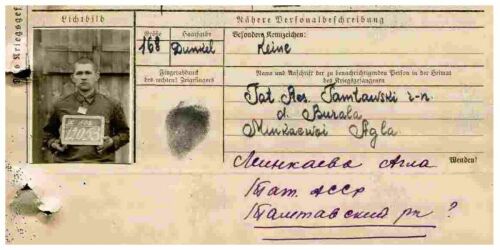 Kriegsgef
Lichtbild
Größe
Haarfarbe
168
Dunkel
Fingerabdruck
des rechten! Zeigefingers
Nähere Personalbeschreibung
Besondere Kennzeichen:
Keine
Name und Anschrift der zu benachrichtigenden Person in der Heimat
des Kriegsgefangenen
Tat. Aes. Tamtawski r-n.
d. Burala
Minkaewoi Agla
Wenden!
Минкаева Агла
Тат. АССР
Тамтавский рн ?